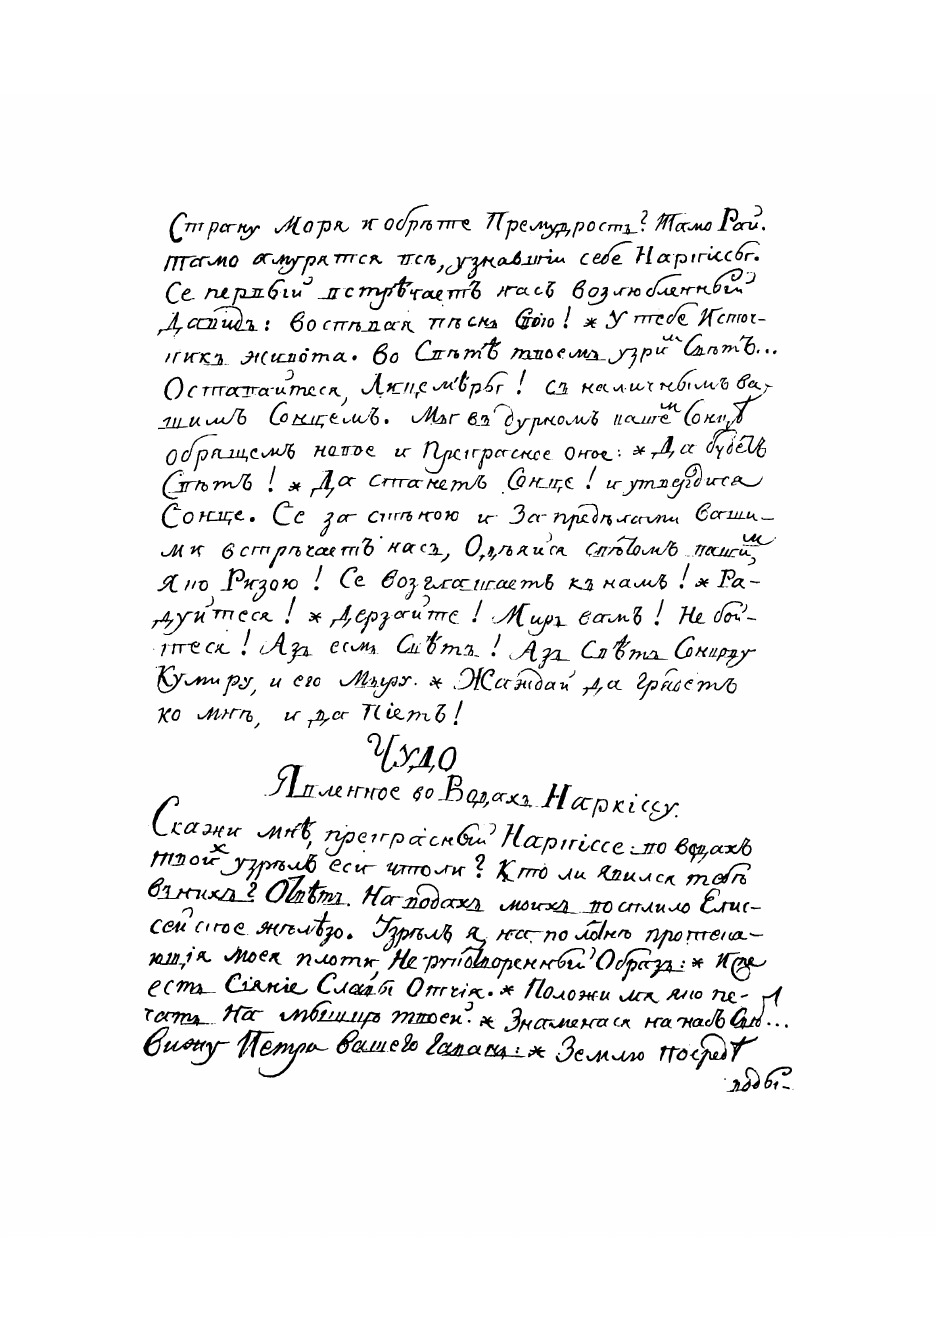 Страну Моря и обрѣте Премудрость? Тамо Рай.
тамо амурятся всѣ, узнавшіи себе Наркіссы.
Се первый встрѣчаетъ насъ возлюбленный
Давидъ: воспѣвая пѣснь Свою! * У тебе Источ-
никъ живота. Во Свѣтѣ твоемъ узрим Свѣтъ...
Оставайтеся, Лицемѣры! съ наличнымъ ва-
шимъ Сонцемъ. Мы въ дурномъ вашем Сонцѣ
обрящемъ новое и Прекрасное оное: * Да будетъ
Свѣтъ! * Да станетъ Сонце! и утвердися
Сонце. Се за стѣною и За предѣлами ваши-
ми встрѣчаетъ насъ, Одѣяйся свѣтомъ вашим,
Яко Ризою! Се возглашаетъ къ намъ! * Ра-
дуйтеся! * Дерзайте! Миръ вамъ! Не бой-
теся! Азъ есмь Свѣтъ! Азъ Свѣтъ Сонцеву
Кумиру, и его Міру. * Жаждай да грядетъ
ко мнѣ, и да Піетъ!
Чудо
Явленное во Водахъ Наркіссу.
Скажи мнѣ, прекрасный Наркіссе: во водахъ
твоих узрѣлъ еси чтоли? Кто ли явился тебѣ
въ нихъ? Отвѣтъ. На водах моихъ восплило Елис-
сейское желѣзо. Узрѣлъ я, на полотнѣ протека-
ющія моея плоти, Нерукотворенный Образ: * Иже
есть Сіяніе Славы Отчія. * Положи мя яко пе-
чать На мышцѣ твоей. * Знаменася на насъ Свѣт...
Вижу Петра вашего Гавань: * Землю посредѣ
воды-